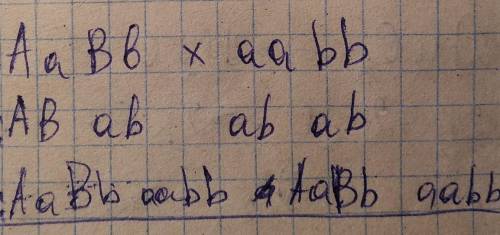 AaBb x aabb
AB ab ab ab
AaBb aabb AaBb aabb